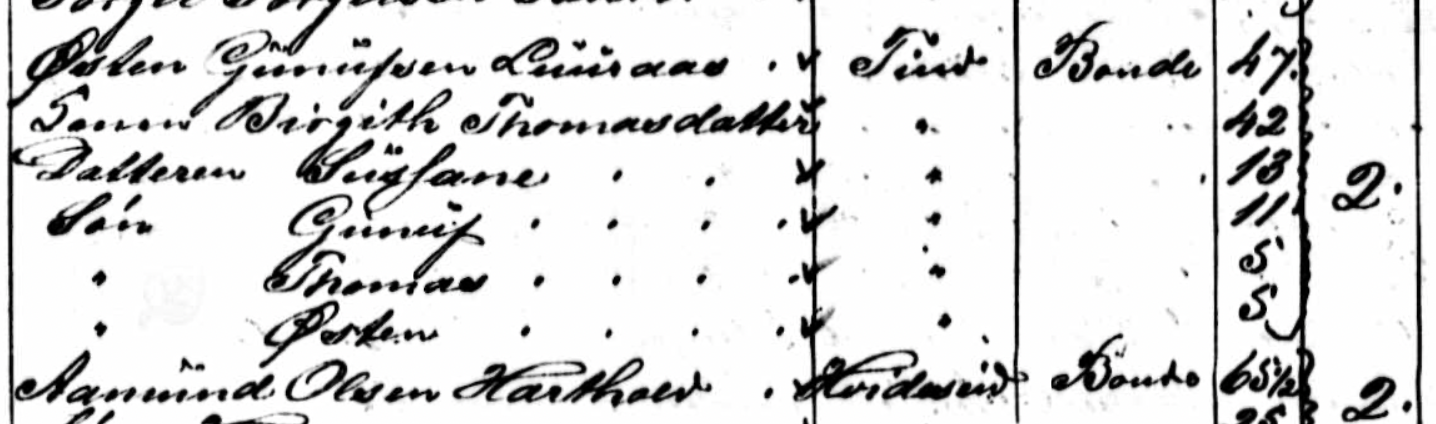 Østen Gunufsen Luuraas . Tind Bonde 47.
Konen Birgith Thomasdatter " 42
Datteren Sussane . . " 13 2.
Søn Gunuf . . . . " 11
" Thomas . . . . " 5
" Østen . . . . " 5
Aamund Olsen . Hvideseid Bonde 65½ 2.
25